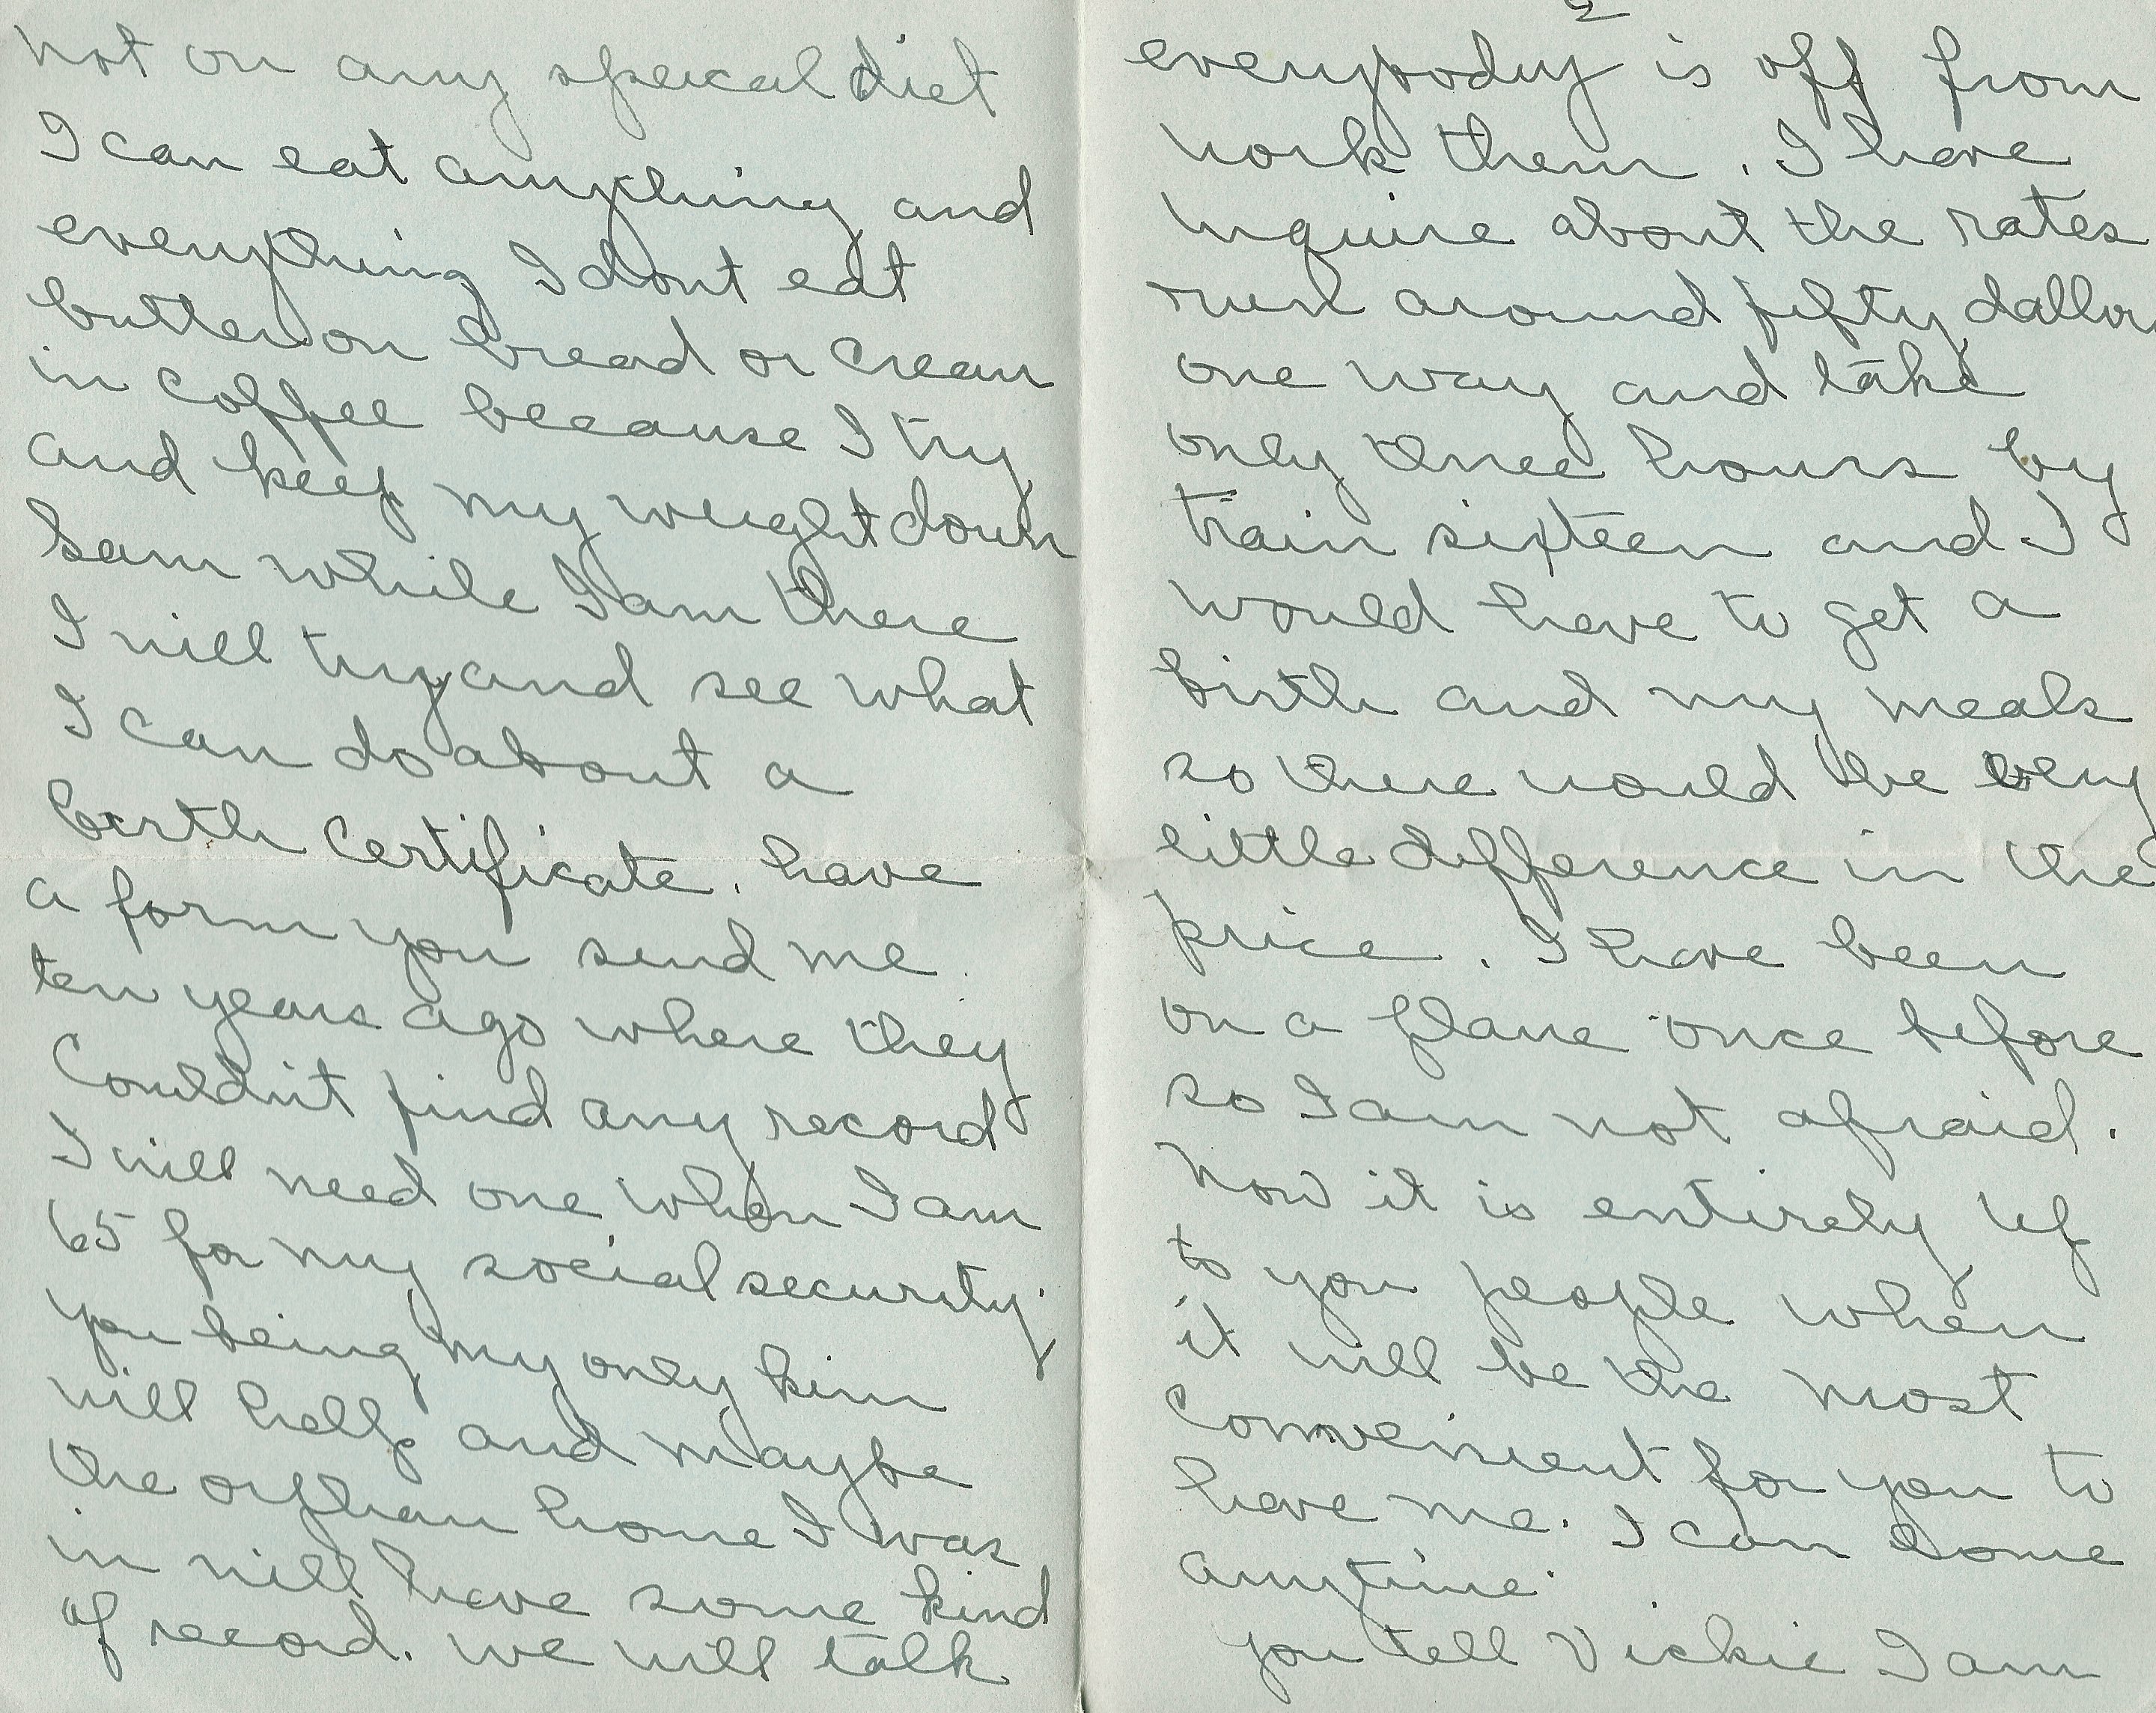 not on any speical diet
I can eat anything and
everything I dont eat
butter on bread or cream
in coffee because I try
and keep my weight down
Sam while I am there
I will try and see what
I can do about a
birth certificate. have
a form you send me
ten years ago where they
Couldn't find any record
I will need one when I am
65 for my social security.
you being my only kin
will help and maybe
the orphan home I was
in will have some kind
of record. we will talk
2
everybody is off from
work them. I have
inquire about the rates
run around fifty dallor
one way and take
only three hours by
train sixteen and I
would have to get a
birth and my meals
so there would be very
little difference in the
price. I have been
on a plane once before
so I am not afraid.
now it is entirely up
to you people when
it will be the most
convenient for you to
have me. I can come
anytime.
you tell Vickie I am